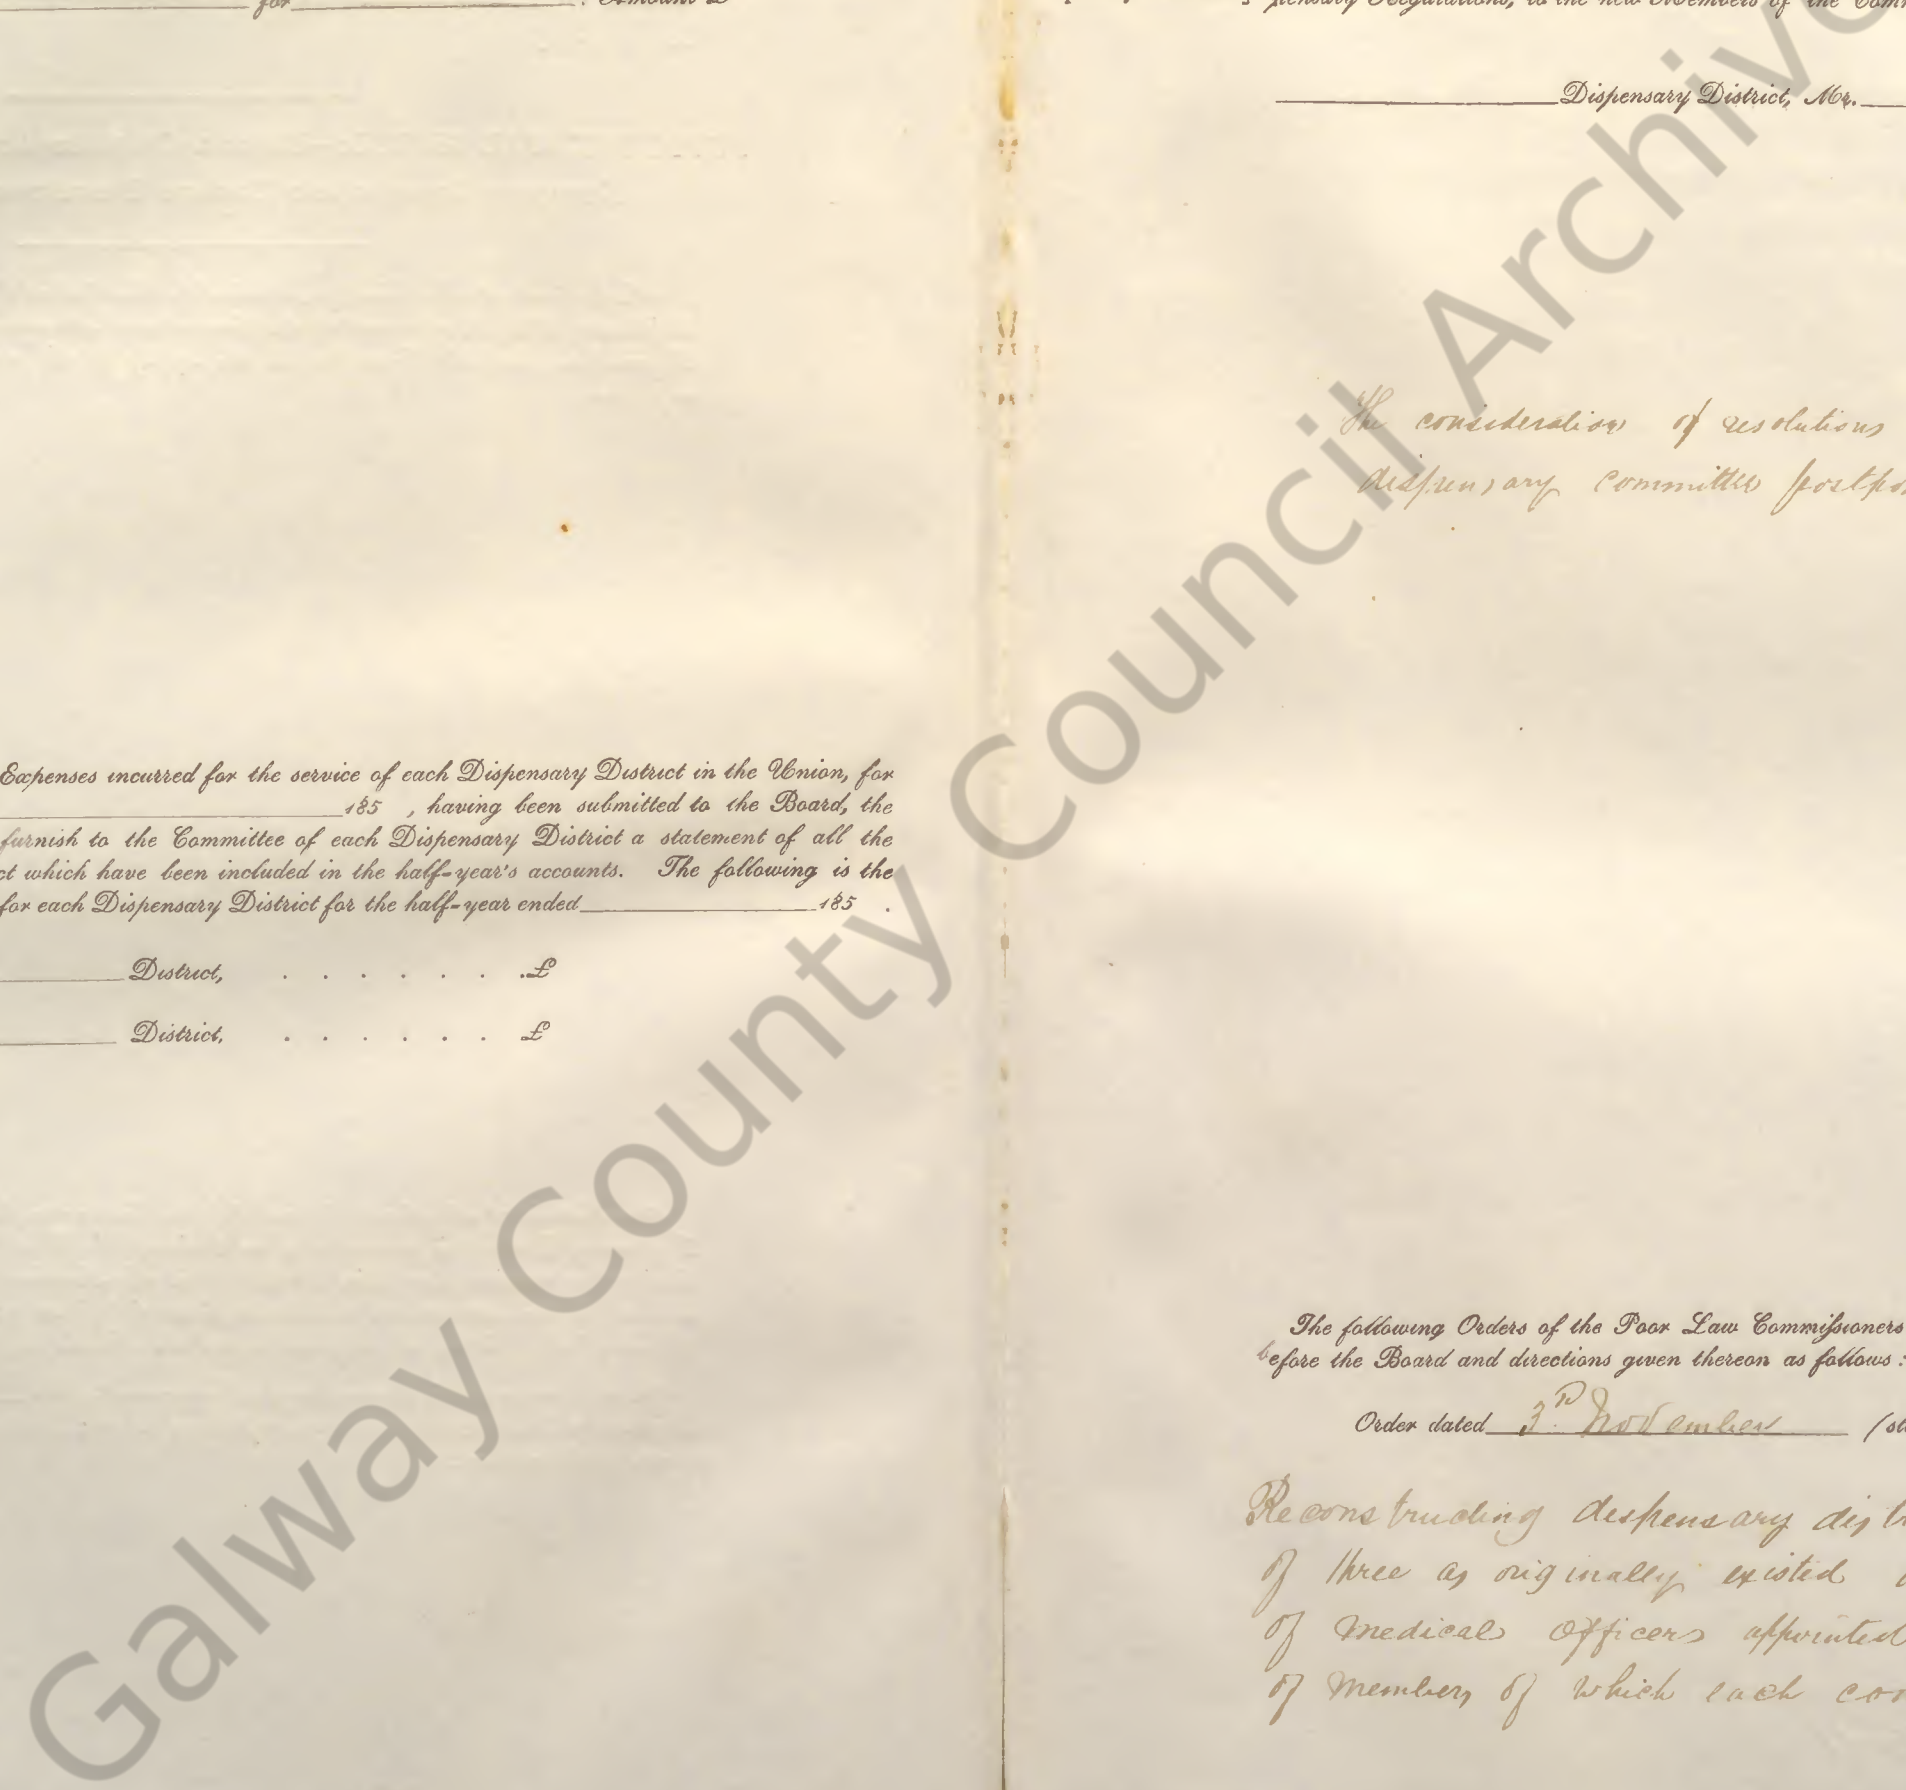 for . Amount £
Expenses incurred for the service of each Dispensary District in the Union, for
185 , having been submitted to the Board, the
furnish to the Committee of each Dispensary District a statement of all the
ct which have been included in the half-year's accounts. The following is the
for each Dispensary District for the half-year ended 185 .
District, . . . . . . . £
District, . . . . . . £
pensary Regulations, to the new Members of the Com
Dispensary District, Mr.
The consideration of resolutions
dispensary committee postpo
The following Orders of the Poor Law Commissioners
before the Board and directions given thereon as follows :
Order dated 3rd November (st
Reconstructing dispensary dist
of three as originally existed
of medical officers appointed
of members of which each con
Galway County Council Archive